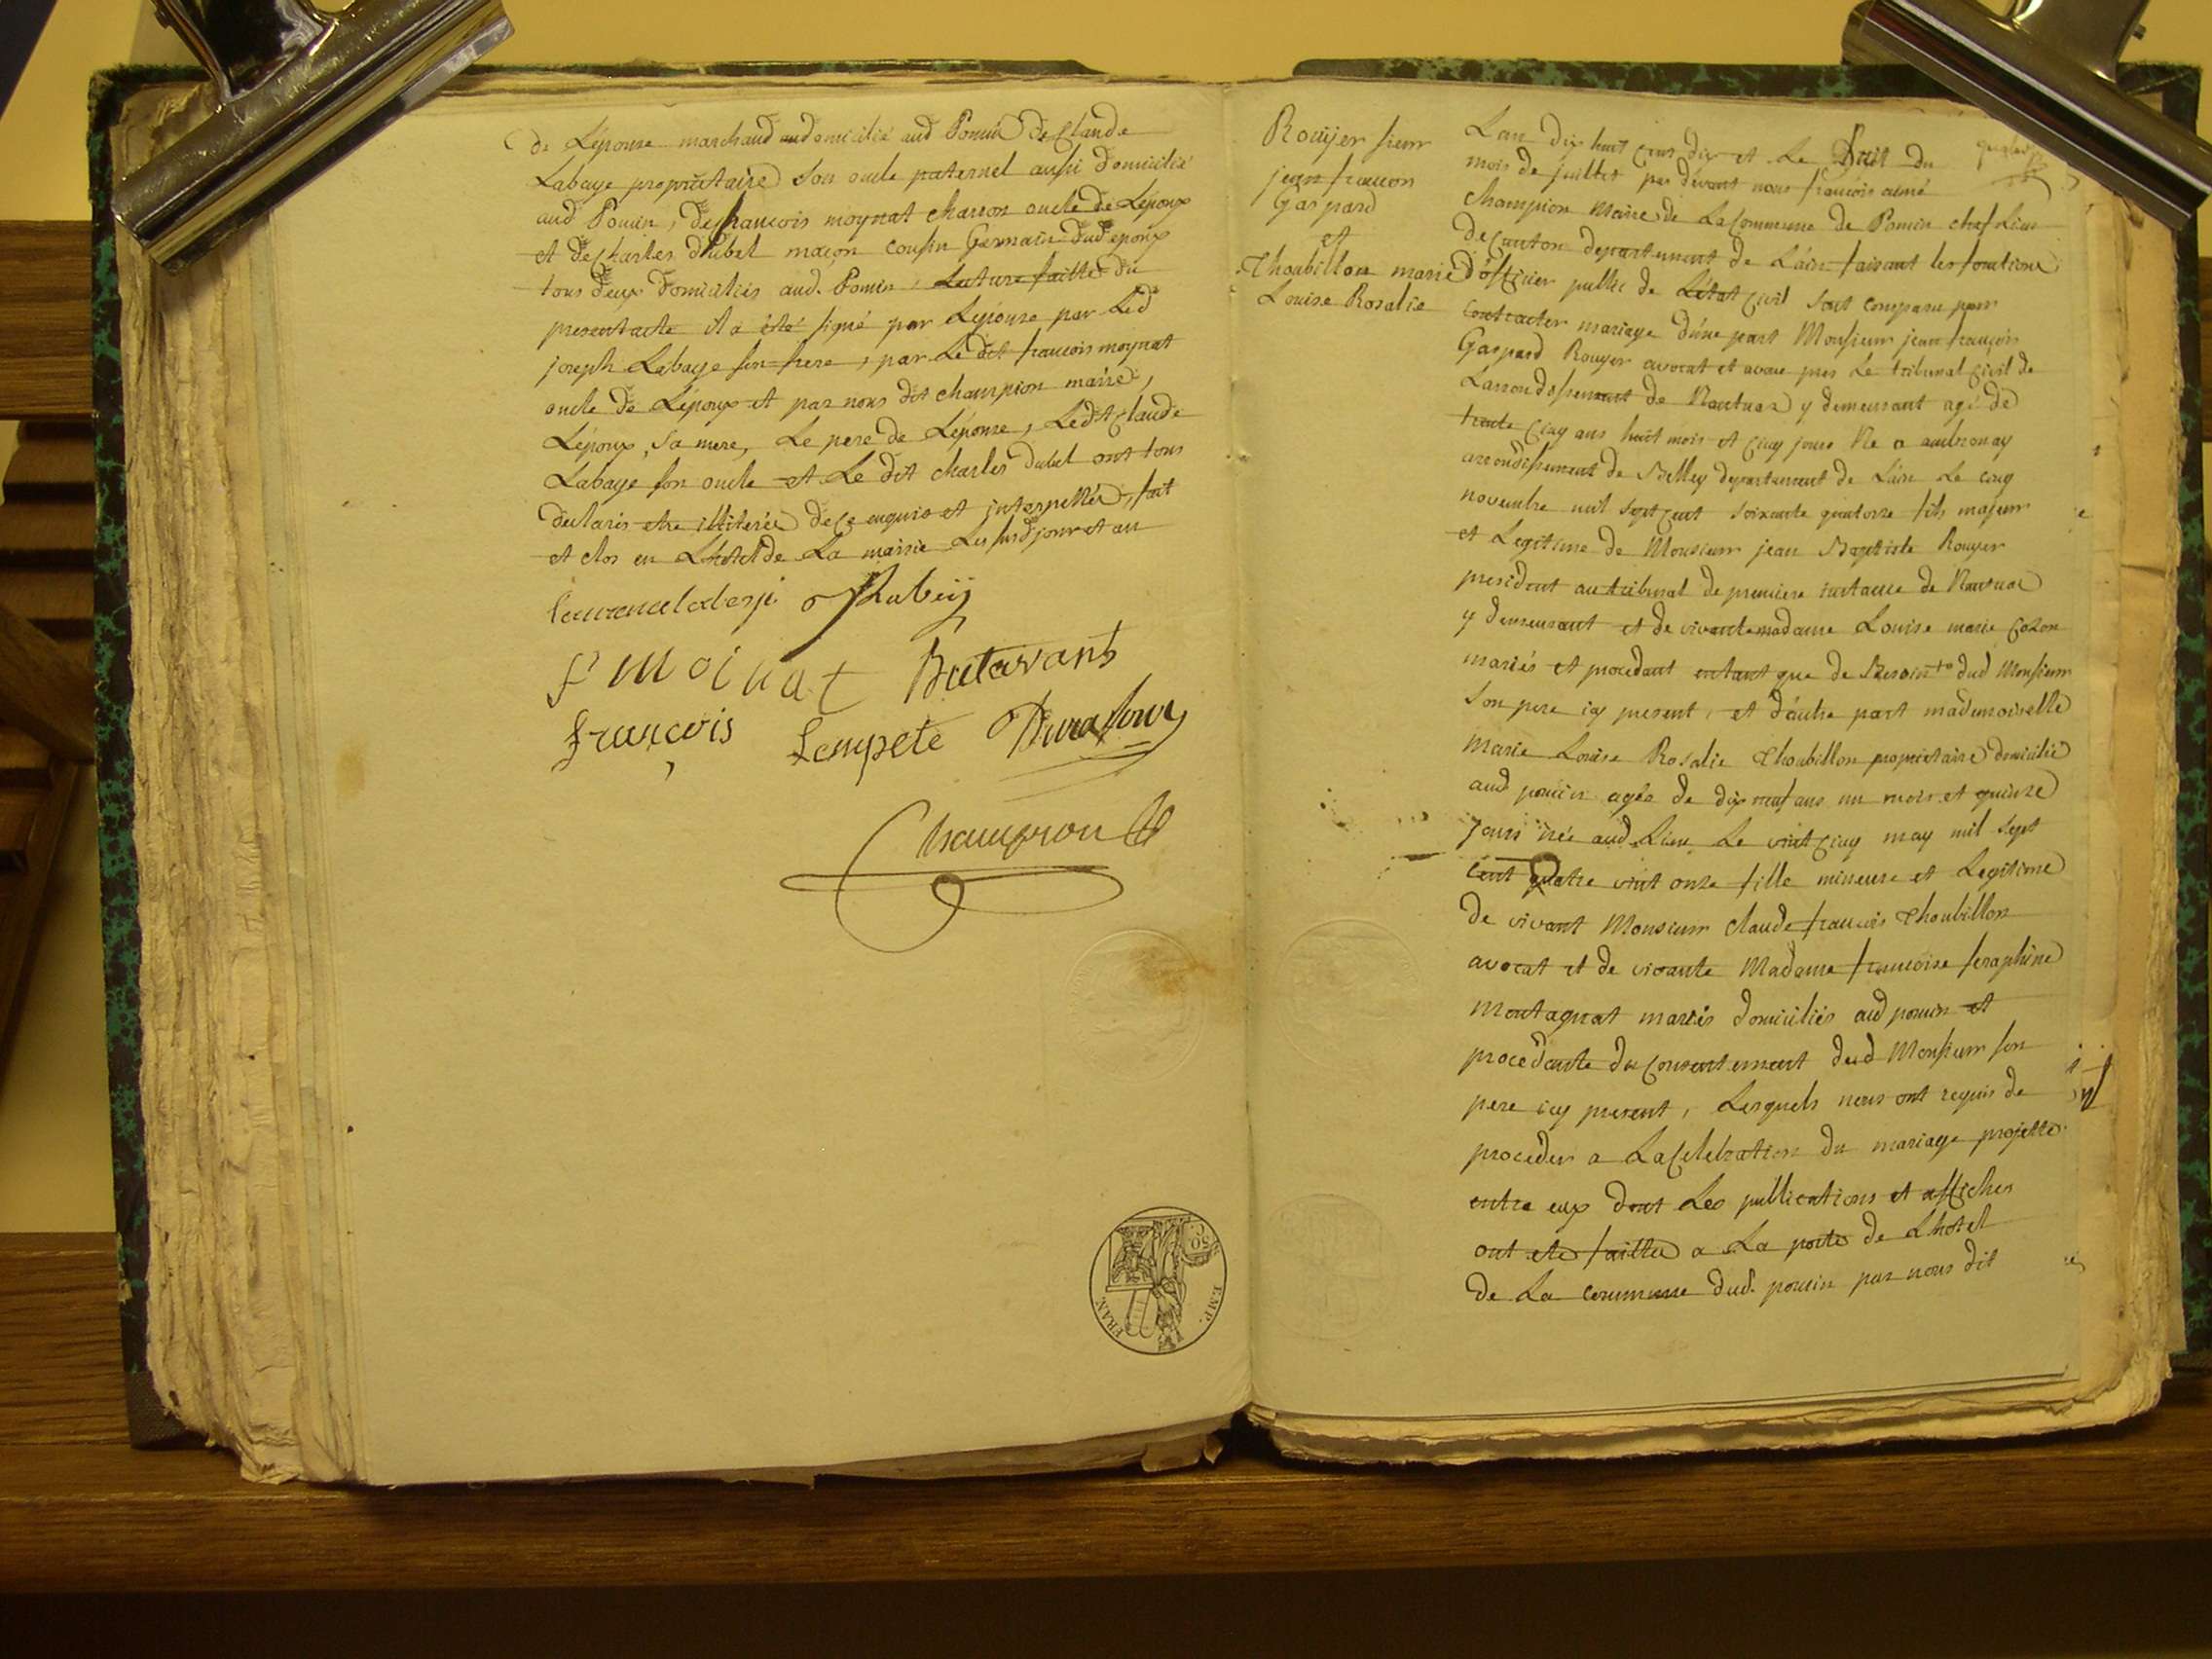 de Lépouse marchand audomicilié aud Poncin de Claude
Labaye propriétaire son oncle paternel aussi domicilié
aud Poncin, de francois moynat charron oncle de Lépoux
et de Charles dubel maçon cousin Germain dud époux
tous deux domiciliés aud. Poncin, Lecture faitte du
present acte il a été signé par Lépouse par Led
joseph Labaye son frere, par Le dit francois moynat
oncle de Lépoux et par nous dit champion maire,
Lépoux, sa mere, Le pere de Lépouse, Ledit Claude
Labaye son oncle et Le dit charles dubel ont tous
declarés etre illiterés de ce enquis et interpellés, fait
et clos en Lhotel de La mairie Les susd jour et an
Rubeÿ
f moinat Butavant
françois Lempete Durafour
Champion
FRAN.
EMP.
50 C.
Rouyer sieur
jean francois
Gaspard
et
Thoubillon marie
Louise Rosalie
Lan dix huit cent dix et Le huit du
mois de juillet par devant nous francois aimé
Champion Maire de La Commune de Poncin chef Lieu
de Canton departement de Lain faisant les fonctions
dofficier public de Létat Civil sont comparu pour
contracter mariage dune part Monsieur jean francois
Gaspard Rouyer avocat et avoué pres Le tribunal Civil de
Larrondissement de Nantua y demeurant agé de
trente cinq ans huit mois et cinq jours Né a ambronay
arrondissement de Belley departement de Lain Le cinq
novembre mil sept cent soixante quatorze fils majeur
et Legitime de Monsieur jean Baptiste Rouyer
president au tribunal de premiere instance de Nantua
y demeurant et de vivante madame Louise marie Cozon
mariés et procedant entant que de Besoin dud Monsieur
son pere icy present, et dautre part mademoiselle
Marie Louise Rosalie Thoubillon propriétaire domicilié
aud poncin agée de dix neuf ans un mois et quinze
jours née aud Lieu Le vint cinq may mil sept
cent quatre vint onze fille mineure et Legitime
de vivant Monsieur Claude francois Thoubillon
avocat et de vivante Madame francoise seraphine
Montagnat mariés domiciliés aud poncin et
procedante du Consentement dud Monsieur son
pere icy present, Lesquels nous ont requis de
proceder a La Celebration du mariage projetté
entre eux dont Les publications et affiches
ont eté faittes a La porte de Lhotel
de La commune dud. poncin par nous dit